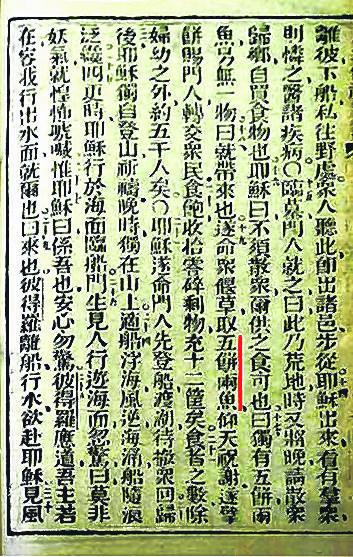 離彼下船私往野處衆人聽此卽出諸邑步從耶穌出來看有羣衆
則憐之醫諸疾病〇臨暮門人就之曰此乃荒地時又將晚請散衆
歸鄉自買食物也耶穌曰不須散衆爾供之食可也曰獨有五餅兩
魚另無一物曰就帶來也遂命衆偃草取五餅兩魚仰天祝謝遂擘
餅賜門人轉交衆民食飽收拾零碎剩物充十二筐矣食者之數除
婦幼之外約五千人矣〇耶穌遂命門人先登船渡湖待散衆回歸
後耶穌獨自登山祈禱晚時獨在山上適船浮海風逆海涌船隨浪
泛緩四更時耶穌行於海面臨船門生見人行遊海面忽驚曰莫非
妖氣就惶怖號喊惟耶穌曰係吾也安心勿驚彼得羅應道吾主若
在容我行出水面就爾也曰來也彼得羅離船行水欲赴耶穌見風